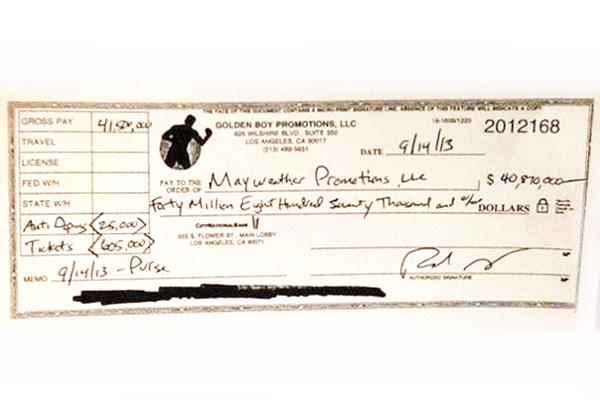 THE FACE OF THIS DOCUMENT CONTAINS A MICRO-PRINT SIGNATURE LINE. ABSENCE OF THIS FEATURE WILL INDICATE A COPY
GROSS PAY 41,500,000
TRAVEL
LICENSE
FED W/H
STATE W/H
Anti Doping <25,000>
Tickets <605,000>
GOLDEN BOY PROMOTIONS, LLC
626 WILSHIRE BLVD., SUITE 350
LOS ANGELES, CA 90017
(213) 489-5631
16-1606/1220
2012168
DATE 9/14/13
PAY TO THE ORDER OF Mayweather Promotions, LLC $ 40,870,000
Forty Million Eight Hundred Seventy Thousand and DOLLARS
CITY NATIONAL BANK
555 S. FLOWER ST., MAIN LOBBY
LOS ANGELES, CA 90071
MEMO 9/14/13 - Purse
AUTHORIZED SIGNATURE
MP
MP